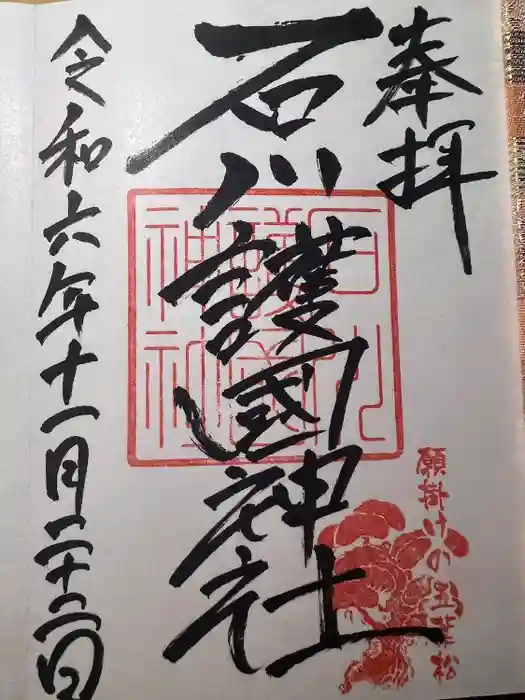 奉拝
石川護國神社
石川護國神社
願掛けの五葉松
令和六年十一月二十三日